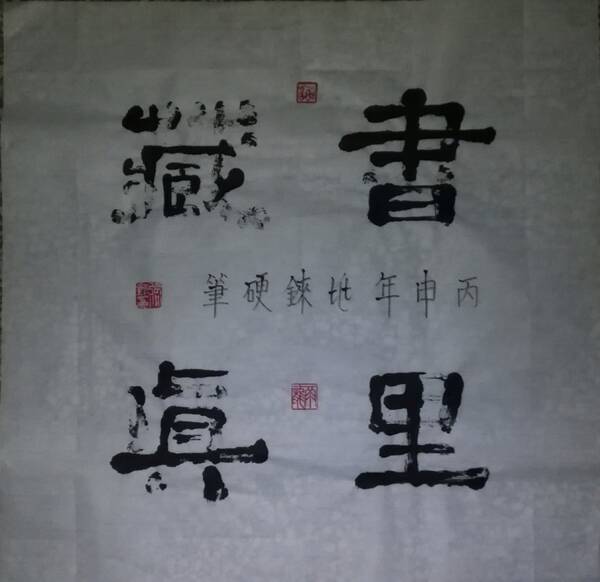 書里
藏眞
丙申年硬筆